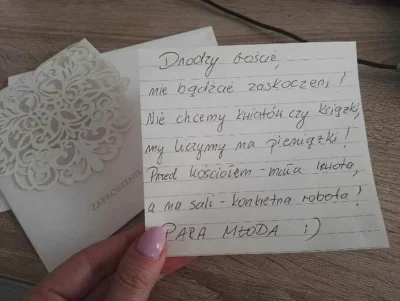 Drodzy Goście,
nie bądźcie zaskoczeni!
Nie chcemy kwiatów czy książki,
my liczymy na pieniążki!
Przed kościołem - mała kwota,
a na sali - konkretna robota!
PARA MŁODA :)
ZAPROSZENIE